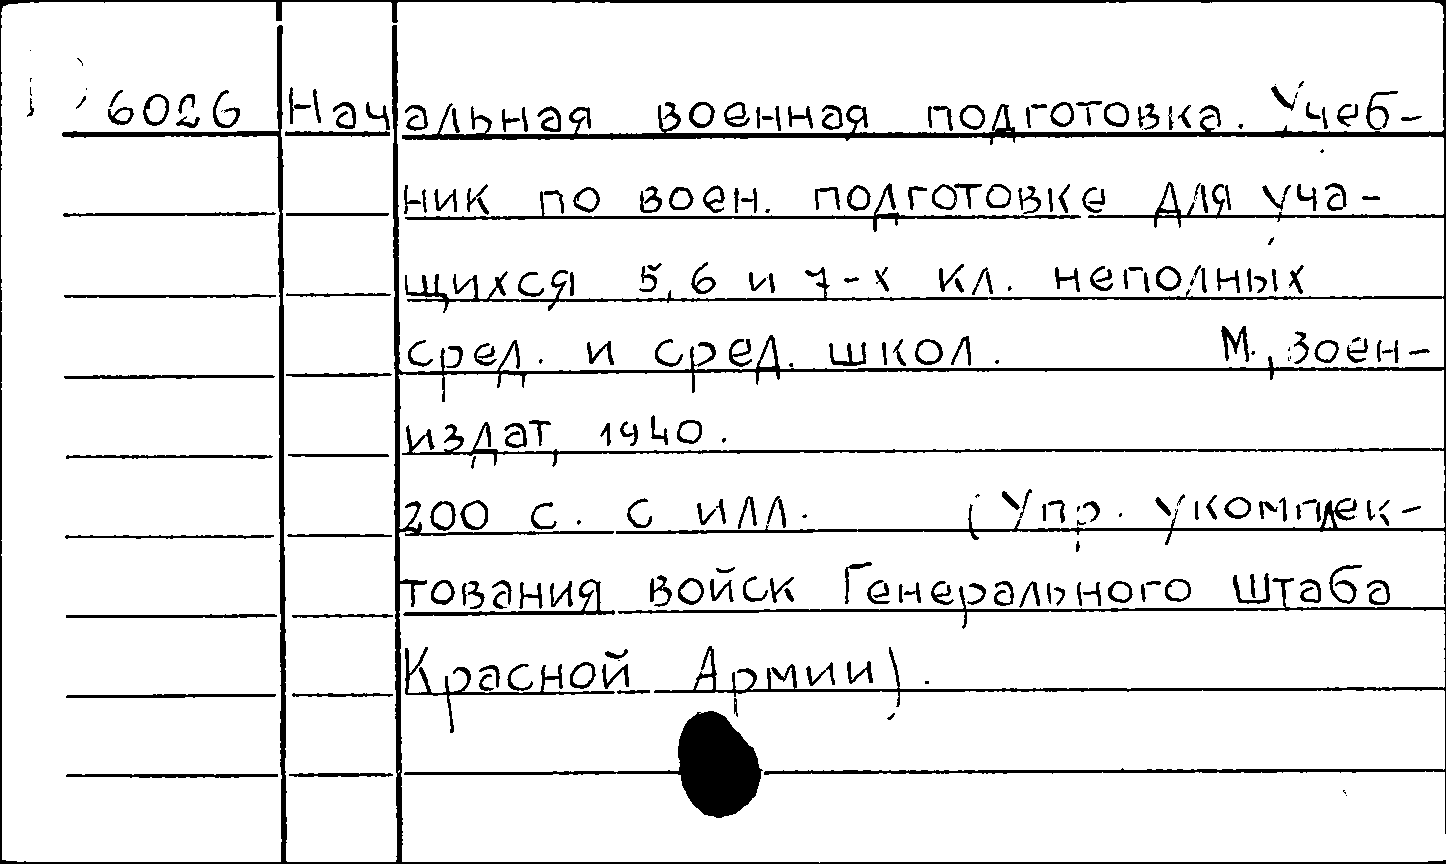 6026 Начальная военная подготовка. Учеб-
ник по воен. подготовке для уча-
щихся 5,6 и 7-х кл. неполных
сред. и сред. школ. М., Воен-
издат, 1940.
200 с. с илл. (Упр. укомплек-
тования войск Генерального Штаба
Красной Армии).